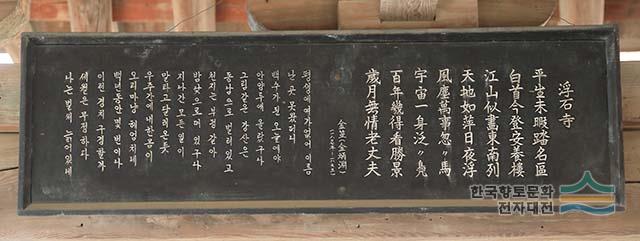 浮石寺
平生未暇踏名區
白首今登安養樓
江山似畵東南列
天地如萍日夜浮
風塵萬事忽〃馬
宇宙一身泛〃鳧
百年幾得看勝景
歲月無情老丈夫
金笠(金炳淵)
평생에 여가 없어 이름
난 곳 못 왔더니
백수가 된 오늘에야
안양루에 올랐구나
그림같은 강산은
동남으로 벌려 있고
천지는 부평 같아
밤낮으로 떠 있구나
지나간 모든 일이
말타고 달려온 듯
우주간에 내 한몸이
오리마냥 헤엄치네
백년동안 몇 번이나
이런 경치 구경할까
세월은 무정하다
나는 벌써 늙어있네
한국향토문화
전자대전